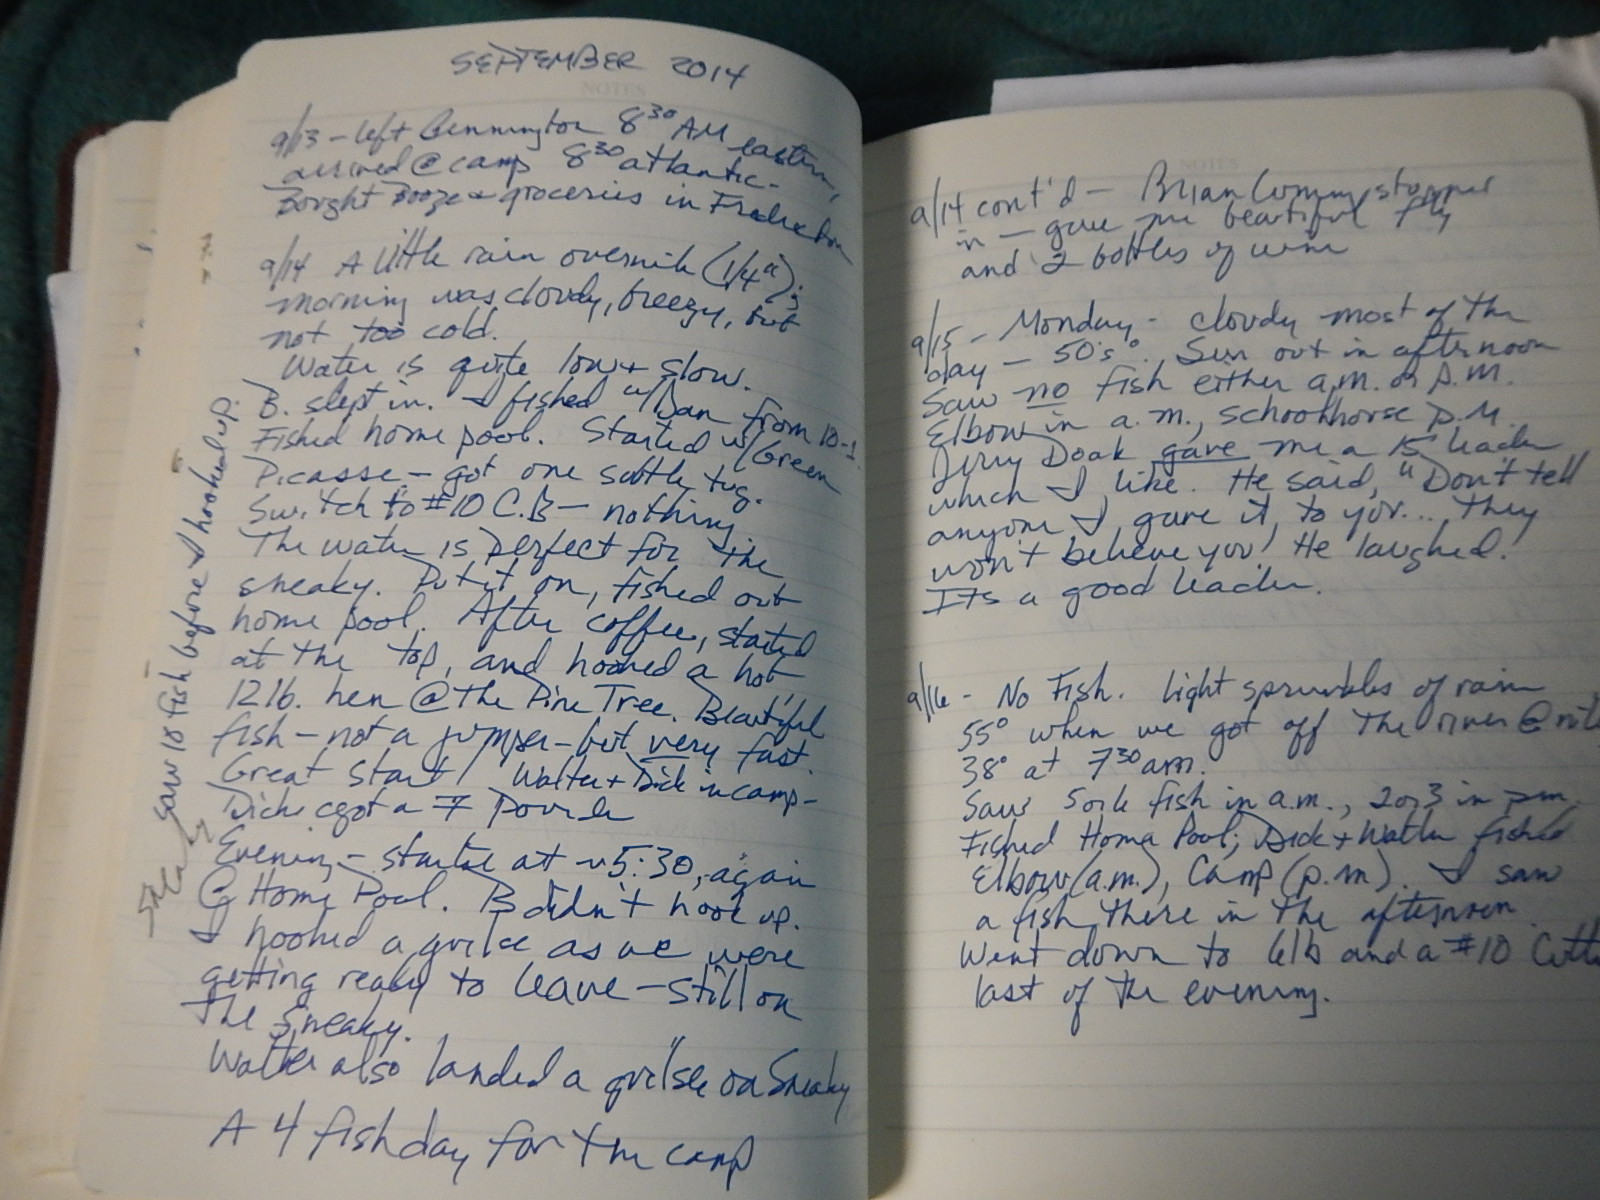 SEPTEMBER 2014
NOTES
9/13 - left Bennington 8 30 AM eastern,
arrived @ camp 8 30 atlantic -
Bought Booze + groceries in Fredericton
9/14 A little rain overnite (1/4");
morning was cloudy, breezy, but
not too cold.
Water is quite low + slow.
B. slept in. I fished w/Dan from 10-1.
Fished home pool. Started w/Green
Picasse - got one subtle tug.
Switch to #10 C.B - nothing
The water is perfect for the
sneaky. Put it on, fished out
home pool. After coffee, started
at the top, and hooked a hot
12 lb. hen @ the Pine Tree. Beautiful
fish - not a jumper - but very fast.
Great start! Walter + Dick in camp -
Dick got a 7 pounder
Evening - started at ~5:30, again
@ Home Pool. B didn't hook up.
I hooked a grilse as we were
getting ready to leave - still on
the Sneaky.
Walter also landed a grilse on Sneaky
A 4 fish day for the camp
saw 10 fish before I hooked up.
Sneaky
NOTES
9/14 cont'd - Brian stopped
in - gave me beautiful fly
and 2 bottles of wine
9/15 - Monday - cloudy most of the
day - 50's°. Sun out in afternoon
Saw no fish either a.m. or p.m.
Elbow in a.m., schoolhouse p.m.
Jerry Doak gave me a 15' leader
which I like. He said, "Don't tell
anyone I gave it to you... they
won't believe you! He laughed.
Its a good leader.
9/16 - No Fish. Light sprinkles of rain
55° when we got off the river @ nite
38° at 7 30 am.
Saw 5 or 6 fish in a.m., 2 or 3 in pm.
Fished Home Pool; Dick + Walter fished
Elbow (a.m.), Camp (p.m). I saw
a fish there in the afternoon.
Went down to 6lb and a #10
last of the evening.